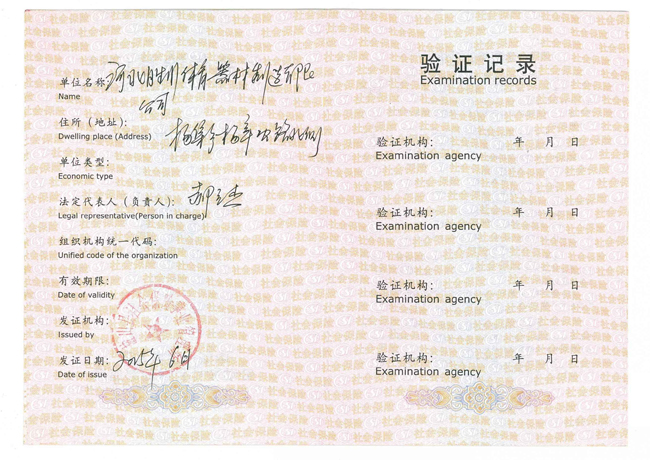 单位名称:
Name
河北
体育器材制造有限
公司
住所(地址):
Dwelling place (Address)
单位类型:
Economic type
法定代表人(负责人):
Legal representative(Person in charge)
组织机构统一代码:
Unified code of the organization
有效期限:
Date of validity
发证机构:
Issued by
发证日期: 2015年6月
Date of issue
验证记录
Examination records
验证机构: 年 月 日
Examination agency
验证机构: 年 月 日
Examination agency
验证机构: 年 月 日
Examination agency
验证机构: 年 月 日
Examination agency
社会保险